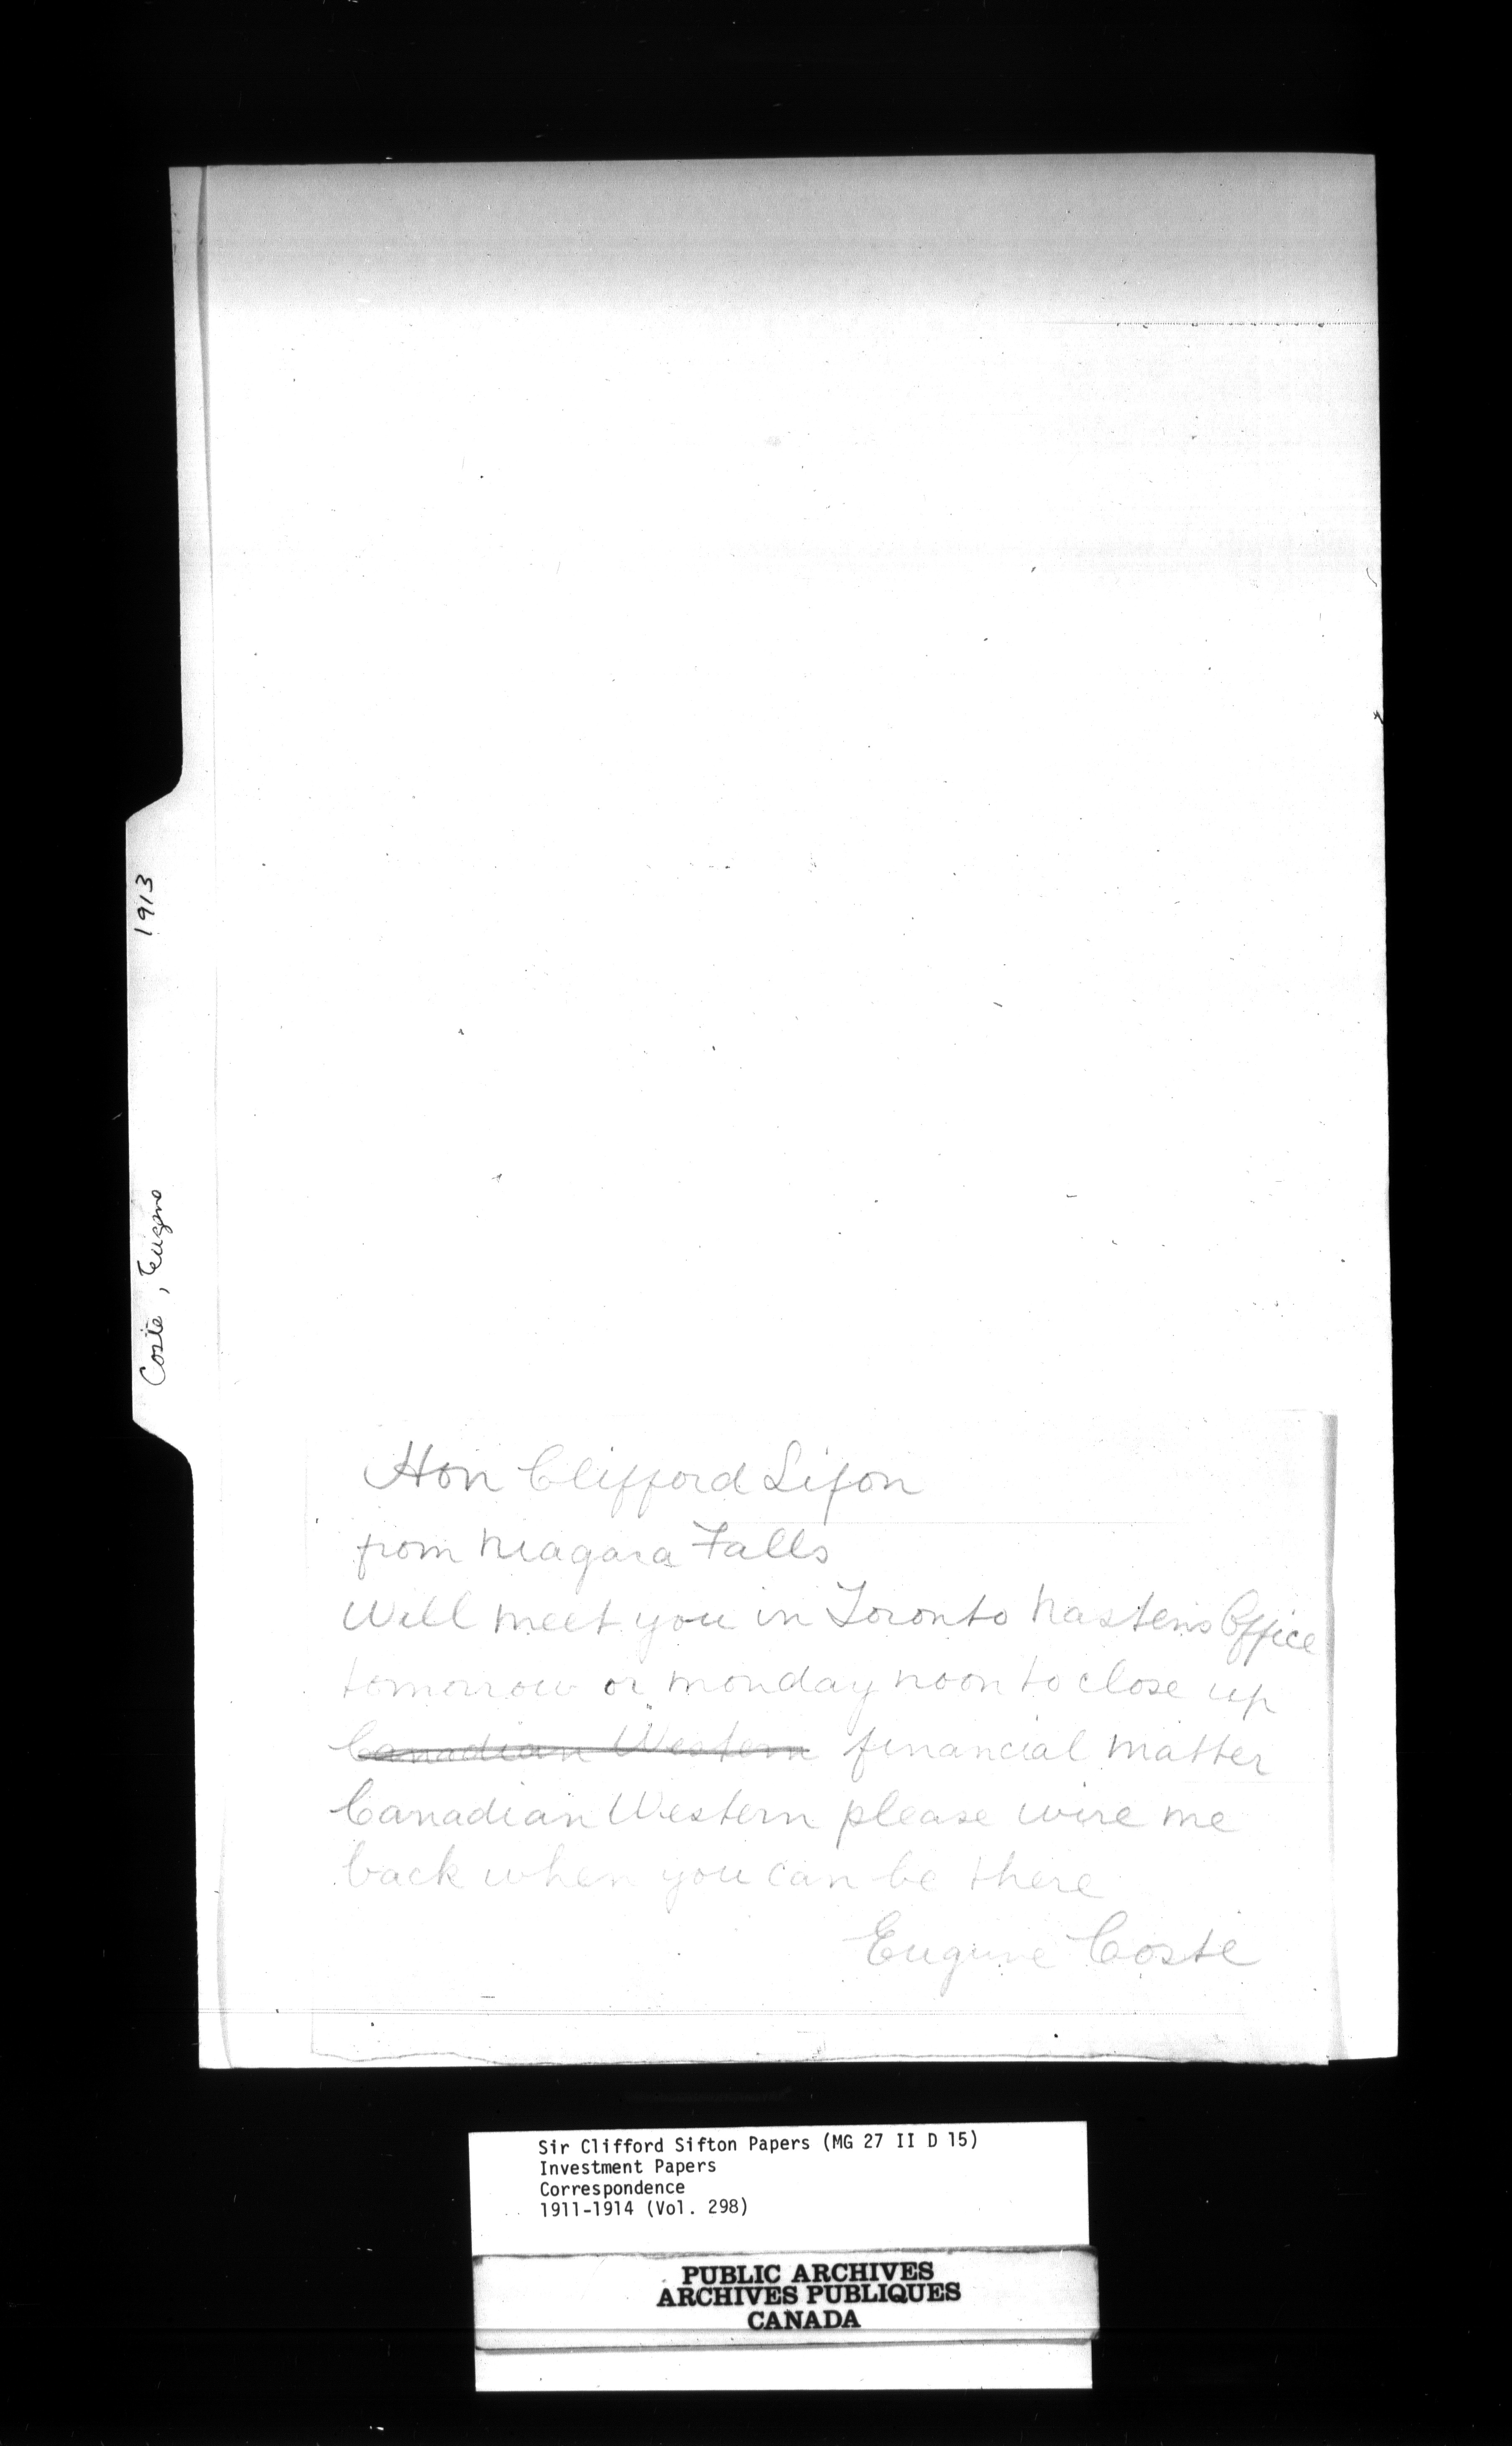 1913
Coste, Eugene
Hon Clifford Sifon
from Niagara Falls
Will meet you in Toronto Mastens Office
tomorrow or monday noon to close up
Canadian Western financial matter
Canadian Western please wire me
back when you can be there
Eugene Coste
Sir Clifford Sifton Papers (MG 27 II D 15)
Investment Papers
Correspondence
1911-1914 (Vol. 298)
PUBLIC ARCHIVES
ARCHIVES PUBLIQUES
CANADA